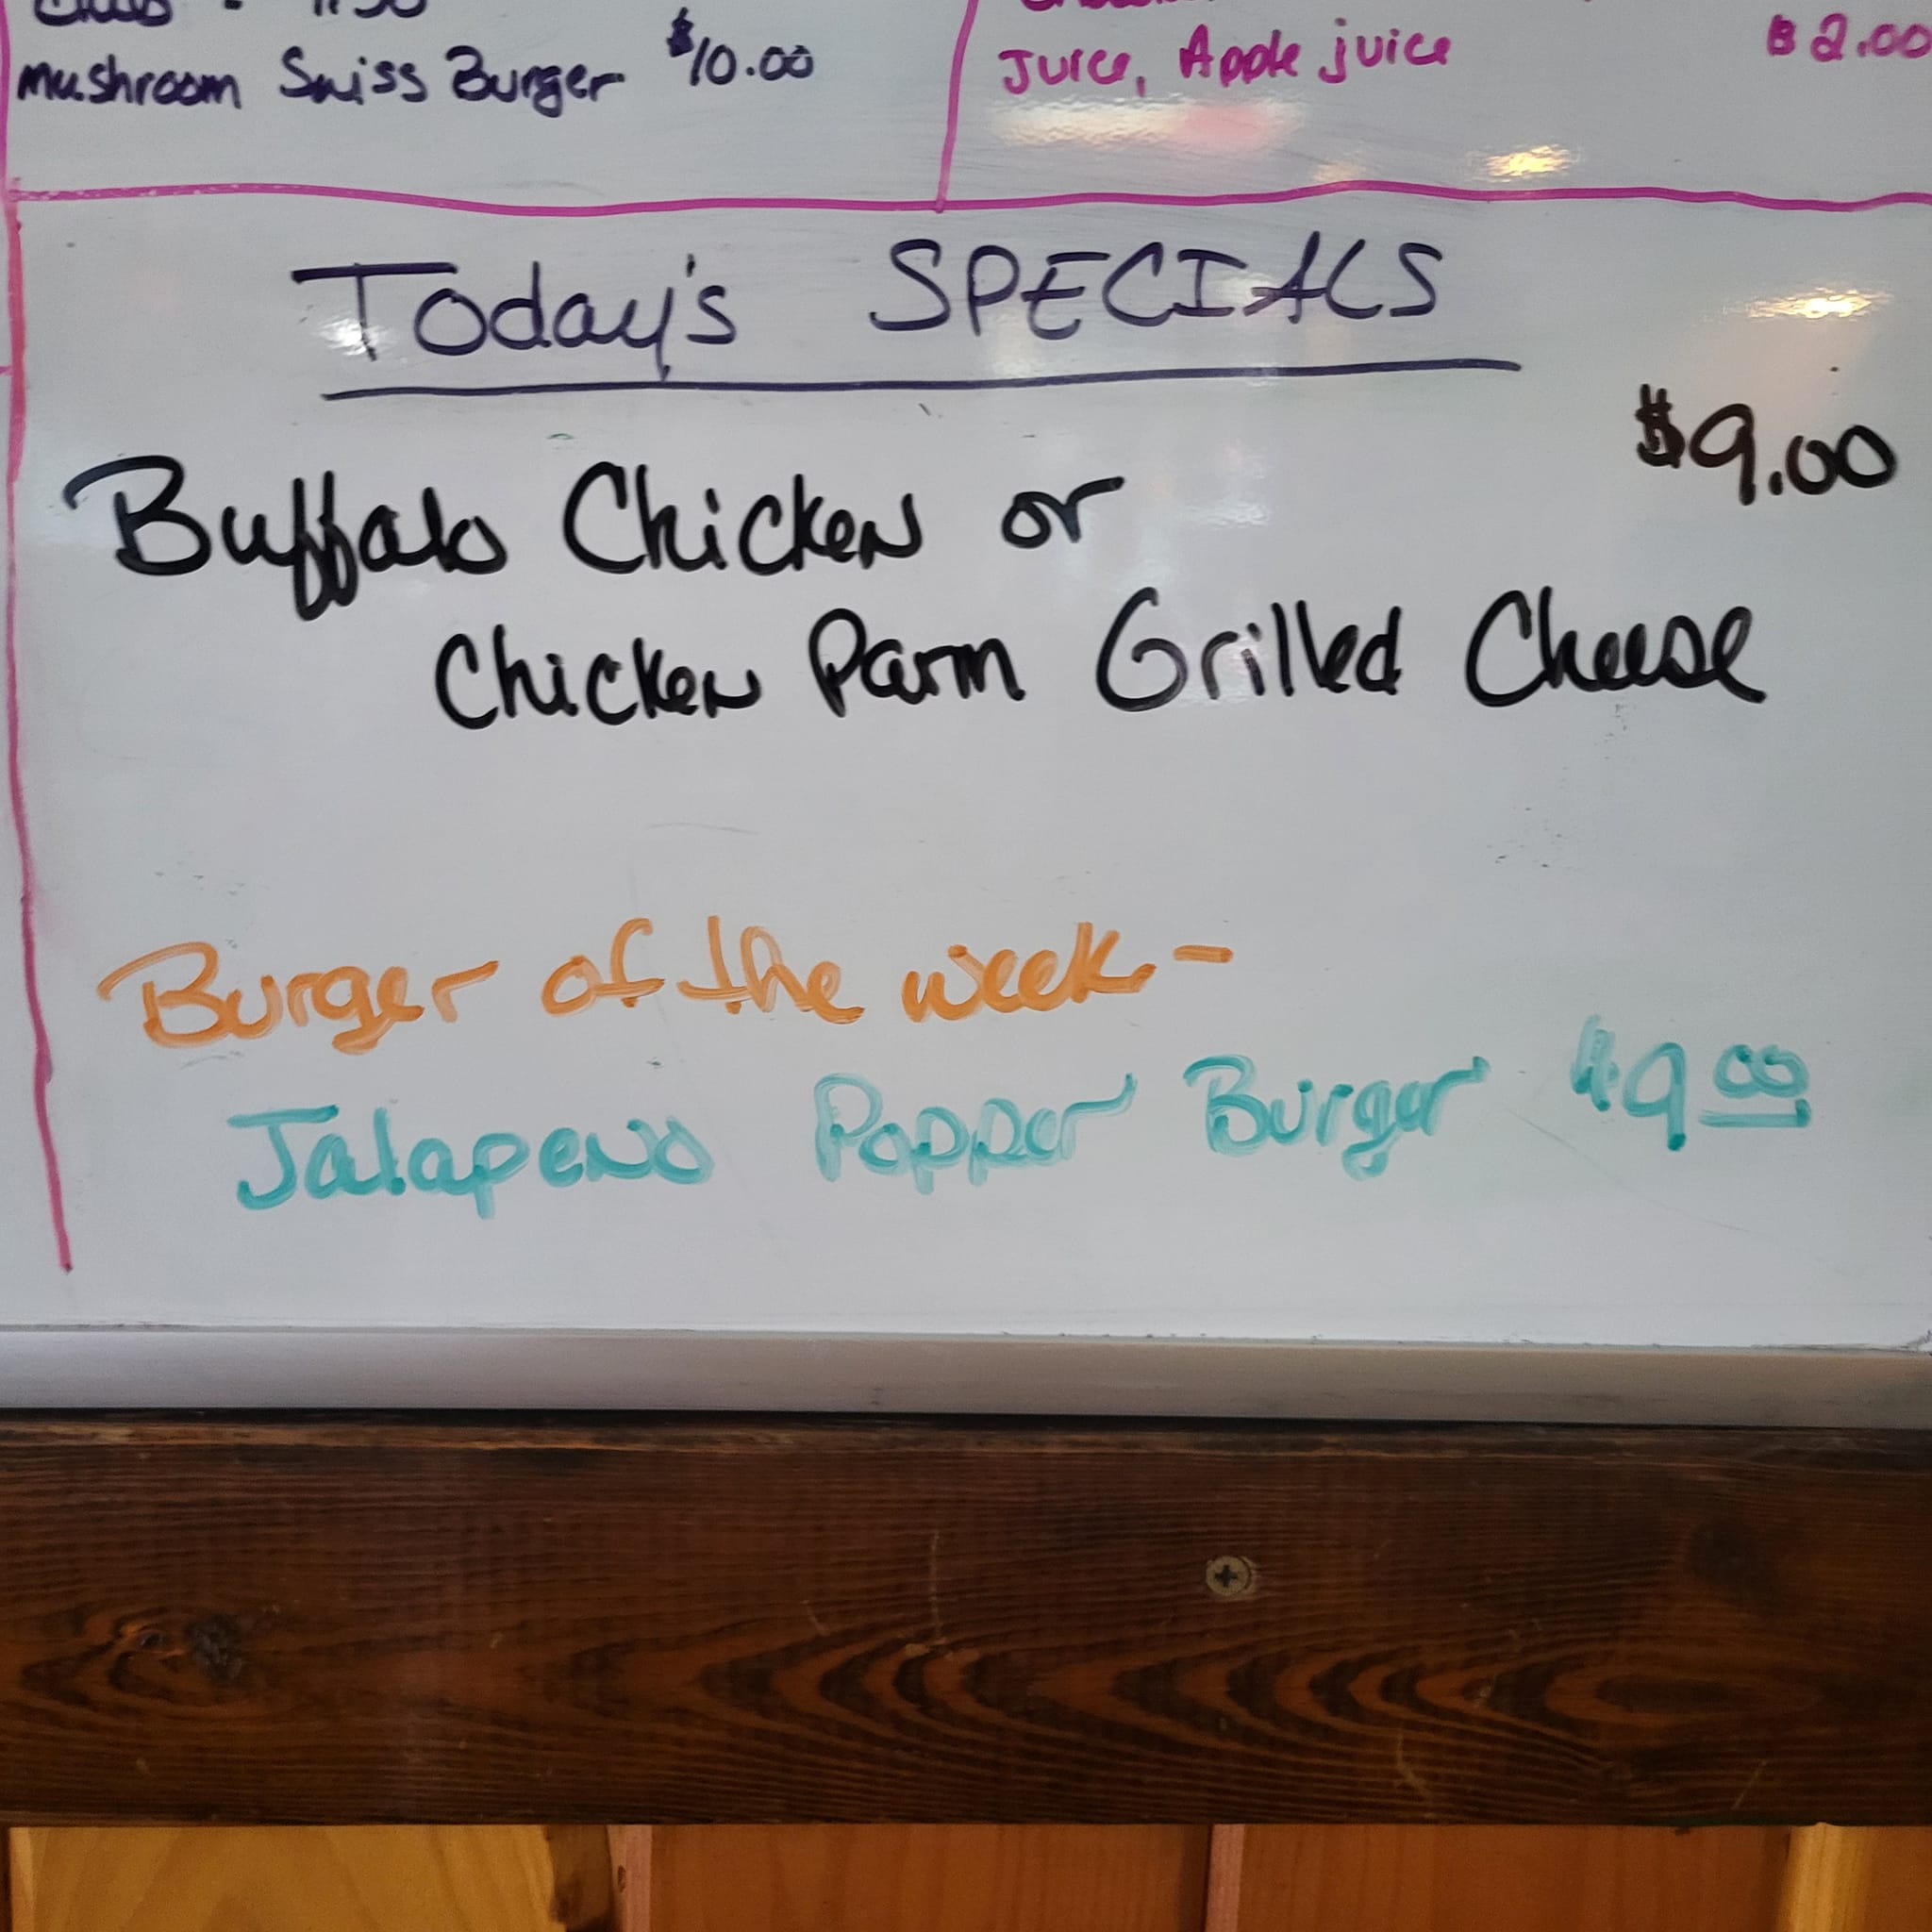 mushroom Swiss Burger $10.00
Juice, Apple juice $2.00
Today's SPECIALS
$9.00
Buffalo Chicken or
Chicken Parm Grilled Cheese
Burger of the week -
Jalapeno Popper Burger $9 00